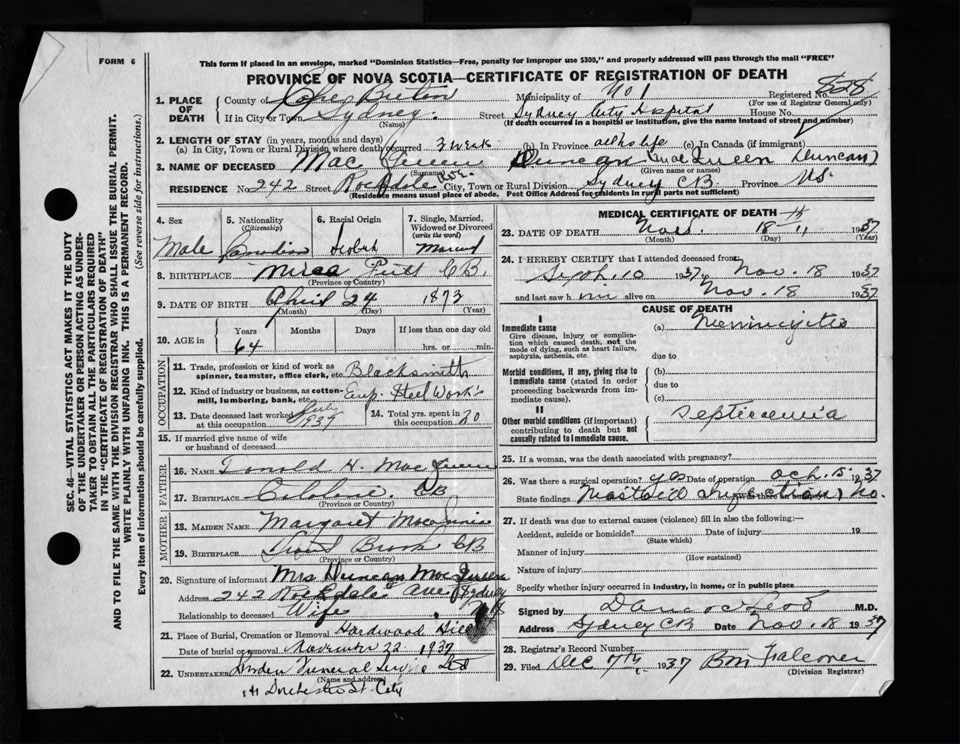 FORM 6
This form if placed in an envelope, marked "Dominion Statistics—Free, penalty for improper use $300," and properly addressed will pass through the mail "FREE"
PROVINCE OF NOVA SCOTIA—CERTIFICATE OF REGISTRATION OF DEATH
1. PLACE OF DEATH County of Cape Breton Municipality of No 1 Registered No. 828
(For use of Registrar General only)
If in City or Town Sydney. (Name) Street Sydney City Hospital House No.
(If death occurred in a hospital or institution, give the name instead of street and number)
2. LENGTH OF STAY (in years, months and days)
(a) In City, Town or Rural Division where death occurred 3 wks (b) In Province all his life (c) In Canada (if immigrant)
3. NAME OF DECEASED Mac Queen Duncan (MacQueen Duncan)
(Surname) (Given name or names)
RESIDENCE No. 242 Street Rockdale Ave. City, Town or Rural Division Sydney CB Province NS.
(Residence means usual place of abode. Post Office Address for residents in rural parts not sufficient)
SEC. 46—VITAL STATISTICS ACT MAKES IT THE DUTY
OF THE UNDERTAKER OR PERSON ACTING AS UNDER-
TAKER TO OBTAIN ALL THE PARTICULARS REQUIRED
IN THE "CERTIFICATE OF REGISTRATION OF DEATH"
AND TO FILE THE SAME WITH THE DIVISION REGISTRAR WHO SHALL ISSUE THE BURIAL PERMIT.
WRITE PLAINLY WITH UNFADING INK. THIS IS A PERMANENT RECORD.
Every item of information should be carefully supplied. (See reverse side for instructions.)
4. Sex Male
5. Nationality (Citizenship) Canadian
6. Racial Origin
7. Single, Married, Widowed or Divorced (write the word) Married
8. BIRTHPLACE Mira CB.
(Province or Country)
9. DATE OF BIRTH April 24 1873
(Month) (Day) (Year)
10. AGE in Years Months Days If less than one day old
64 hrs. or min.
OCCUPATION
11. Trade, profession or kind of work as spinner, teamster, office clerk, etc. Blacksmith
12. Kind of industry or business, as cotton-mill, lumbering, bank, etc. Emp. Steel Works
13. Date deceased last worked at this occupation July 1937
14. Total yrs. spent in this occupation 20
15. If married give name of wife or husband of deceased
FATHER
16. NAME Donald H. MacQueen
17. BIRTHPLACE CB
(Province or Country)
MOTHER
18. MAIDEN NAME Margaret
19. BIRTHPLACE Trout Brook CB
(Province or Country)
20. Signature of informant Mrs Duncan MacQueen
Address 242 Rockdale Ave Sydney
Relationship to deceased Wife NS
21. Place of Burial, Cremation or Removal Hardwood Hill
Date of burial or removal November 22 1937
22. UNDERTAKER Funeral Service Ltd
(Name and address)
Dorchester St. City
MEDICAL CERTIFICATE OF DEATH
23. DATE OF DEATH Nov. 18th 1937
(Month) (Day) (Year)
24. I HEREBY CERTIFY that I attended deceased from
Sept. 10 1937 to Nov. 18 1937
and last saw him alive on Nov. 18 1937
CAUSE OF DEATH
I
Immediate cause (a) Meningitis
Give disease, injury or complication which caused death, not the mode of dying, such as heart failure, asphyxia, asthenia, etc.
due to
Morbid conditions, if any, giving rise to immediate cause (stated in order proceeding backwards from immediate cause). (b)
due to
(c)
II
Other morbid conditions (if important) contributing to death but not causally related to immediate cause. Septicaemia
25. If a woman, was the death associated with pregnancy?
26. Was there a surgical operation? yes Date of operation Oct. 15 1937
State findings Mastoid infection No.
27. If death was due to external causes (violence) fill in also the following:—
Accident, suicide or homicide? Date of injury 19
(State which)
Manner of injury
(How sustained)
Nature of injury
Specify whether injury occurred in industry, in home, or in public place
Signed by Dan McLeod M.D.
Address Sydney CB Date Nov. 18 1937
28. Registrar's Record Number
29. Filed Dec 7th 1937 Falconer
(Division Registrar)